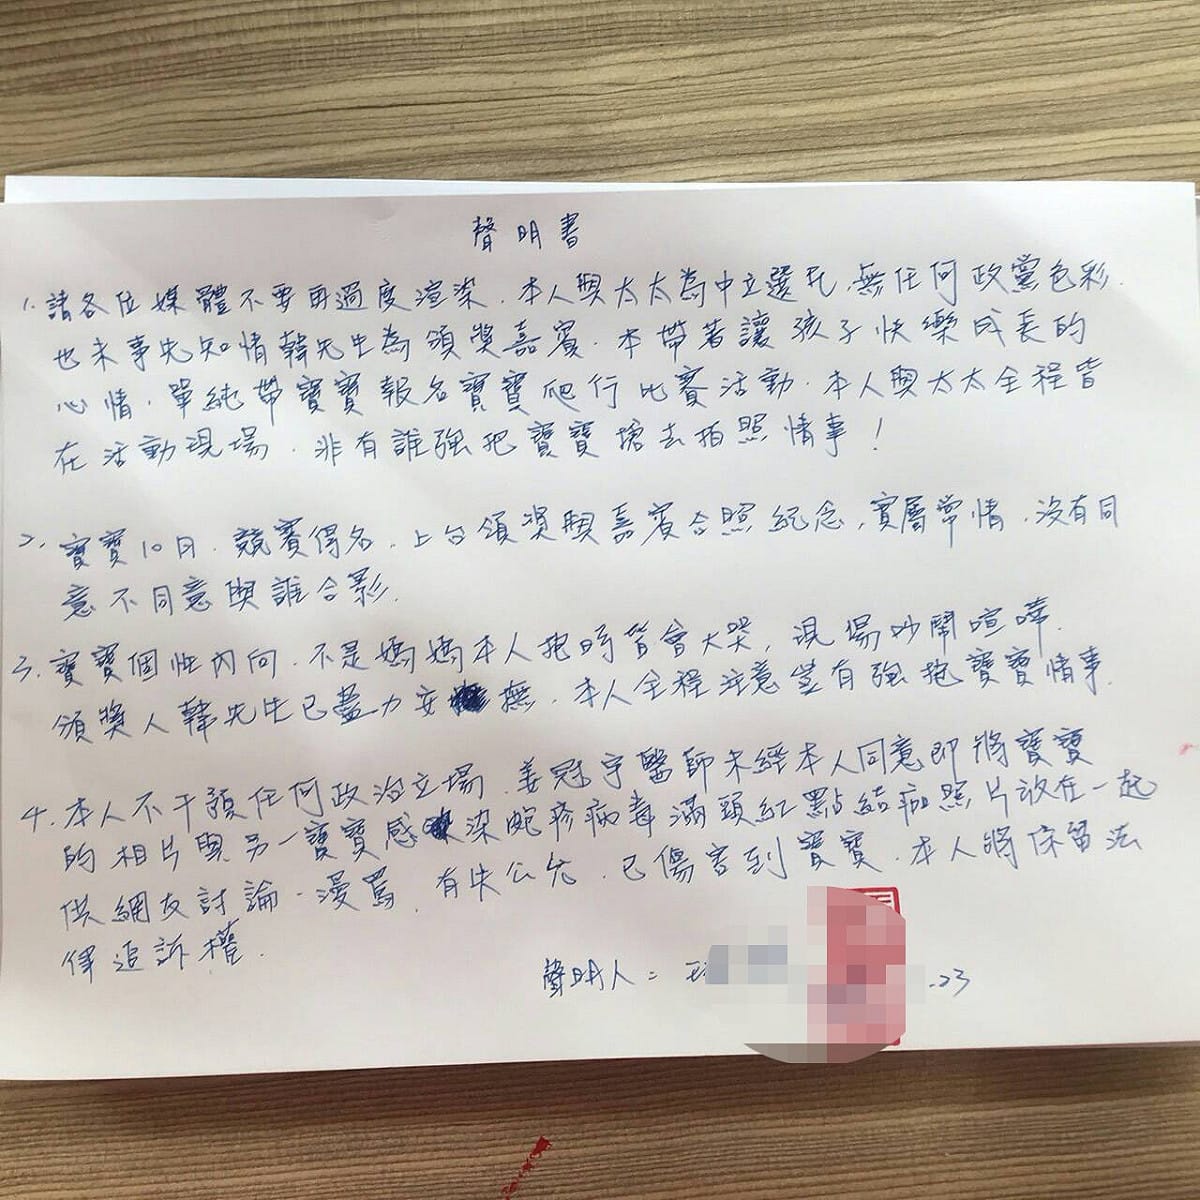 聲明書
1. 請各位媒體不要再過度渲染，本人與太太為中立選民，無任何政黨色彩.
也未事先知情韓先生為頒獎嘉賓. 本帶著讓孩子快樂成長的
心情，單純帶寶寶報名寶寶爬行比賽活動. 本人與太太全程皆
在活動現場. 非有誰強把寶寶搶去拍照情事！
2. 寶寶10日. 競賽得名. 上台領獎與嘉賓合照紀念，實屬常情. 沒有同
意不同意與誰合影.
3. 寶寶個性內向. 不是媽媽本人抱時皆會大哭，現場吵鬧喧嘩.
頒獎人韓先生已盡力安撫. 本人全程注意豈有強抱寶寶情事.
4. 本人不干預任何政治立場. 姜冠宇醫師未經本人同意即將寶寶
的相片與另一寶寶感染皰疹病毒滿頭紅點結痂照片放在一起
供網友討論. 漫罵，有失公允. 已傷害到寶寶. 本人將保留法
律追訴權.
聲明人：
.23